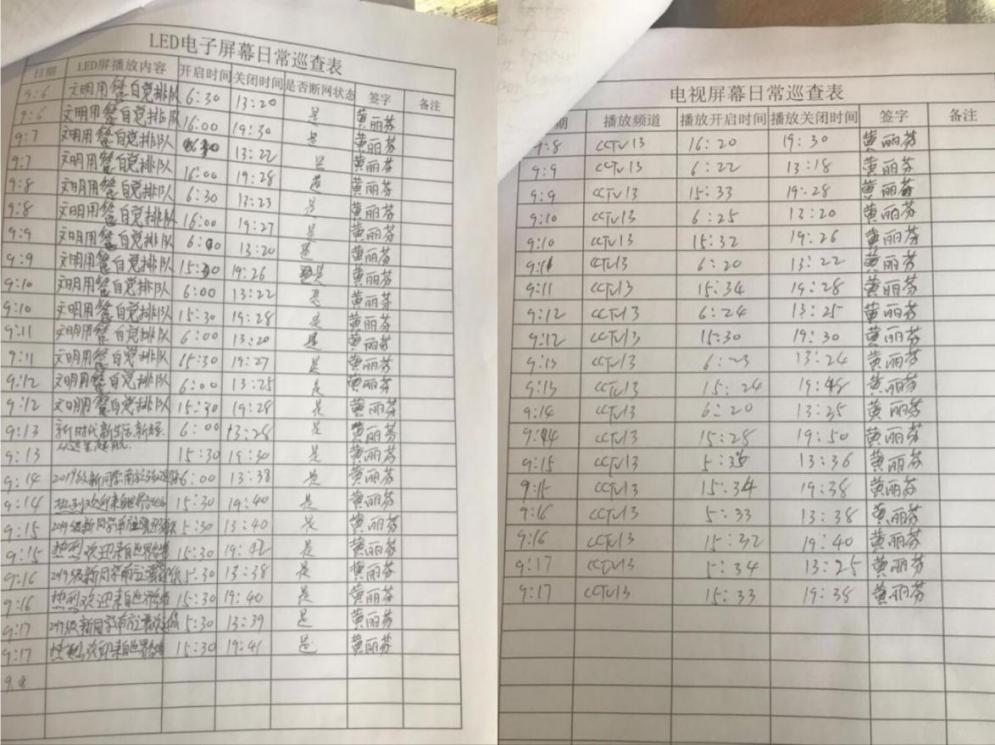 LED电子屏幕日常巡查表
日期 LED屏播放内容 开启时间 关闭时间 是否断网状态 签字 备注
9:6 文明用餐自觉排队 6:30 13:20 是 黄丽芬
9:6 文明用餐自觉排队 16:00 19:30 是 黄丽芬
9:7 文明用餐自觉排队 13:22 是 黄丽芬
9:7 文明用餐自觉排队 16:00 19:28 是 黄丽芬
9:8 文明用餐自觉排队 6:30 13:23 是 黄丽芬
9:8 文明用餐自觉排队 16:00 19:27 是 黄丽芬
9:9 文明用餐自觉排队 6:00 13:20 是 黄丽芬
9:9 文明用餐自觉排队 15:30 19:26 是 黄丽芬
9:10 文明用餐自觉排队 6:00 13:22 是 黄丽芬
9:10 文明用餐自觉排队 15:30 19:28 是 黄丽芬
9:11 文明用餐自觉排队 6:00 13:20 是 黄丽芬
9:11 文明用餐自觉排队 15:30 19:27 是 黄丽芬
9:12 文明用餐自觉排队 6:00 13:25 是 黄丽芬
9:12 文明用餐自觉排队 15:30 19:28 是 黄丽芬
9:13 新时代新生活新 6:00 13:28 是 黄丽芬
9:13 15:30 19:30 是 黄丽芬
9:14 2019级新同学 6:00 13:38 是 黄丽芬
9:14 热烈欢迎来自 15:30 19:40 是 黄丽芬
9:15 2019级新同学 5:30 13:40 是 黄丽芬
9:15 热烈欢迎来自世界各 15:30 19:42 是 黄丽芬
9:16 2019级新同学 5:30 13:38 是 黄丽芬
9:16 热烈欢迎来自世界各 15:30 19:40 是 黄丽芬
9:17 2019级新同学 5:30 13:39 是 黄丽芬
9:17 热烈欢迎来自世界各 15:30 19:41 是 黄丽芬
9.8
电视屏幕日常巡查表
期 播放频道 播放开启时间 播放关闭时间 签字 备注
9:8 CCTV13 16:20 19:30 黄丽芬
9:9 CCTV13 6:22 13:18 黄丽芬
9:9 CCTV13 15:33 19:28 黄丽芬
9:10 CCTV13 6:25 13:20 黄丽芬
9:10 CCTV13 15:32 19:26 黄丽芬
9:11 CCTV13 6:20 13:22 黄丽芬
9:11 CCTV13 15:34 19:28 黄丽芬
9:12 CCTV13 6:24 13:25 黄丽芬
9:12 CCTV13 15:30 19:30 黄丽芬
9:13 CCTV13 6:23 13:24 黄丽芬
9:13 CCTV13 15:24 19:48 黄丽芬
9:14 CCTV13 6:20 13:35 黄丽芬
9:14 CCTV13 15:28 19:50 黄丽芬
9:15 CCTV13 5:35 13:36 黄丽芬
9:15 CCTV13 15:34 19:38 黄丽芬
9:16 CCTV13 5:33 13:38 黄丽芬
9:16 CCTV13 15:32 19:40 黄丽芬
9:17 CCTV13 5:34 13:25 黄丽芬
9:17 CCTV13 15:33 19:38 黄丽芬